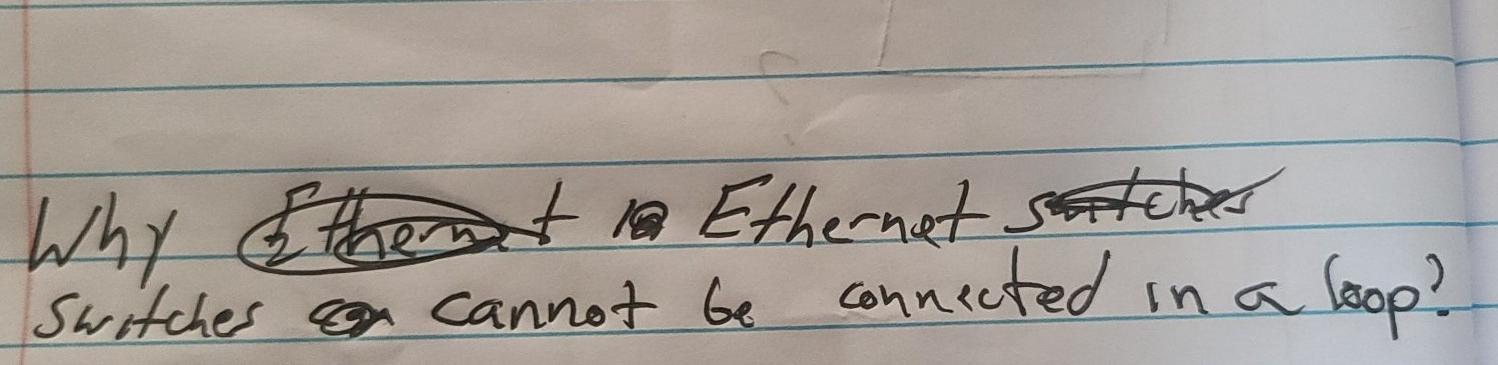 Why Ethernet Ethernet switches
switches cannot be connected in a loop?